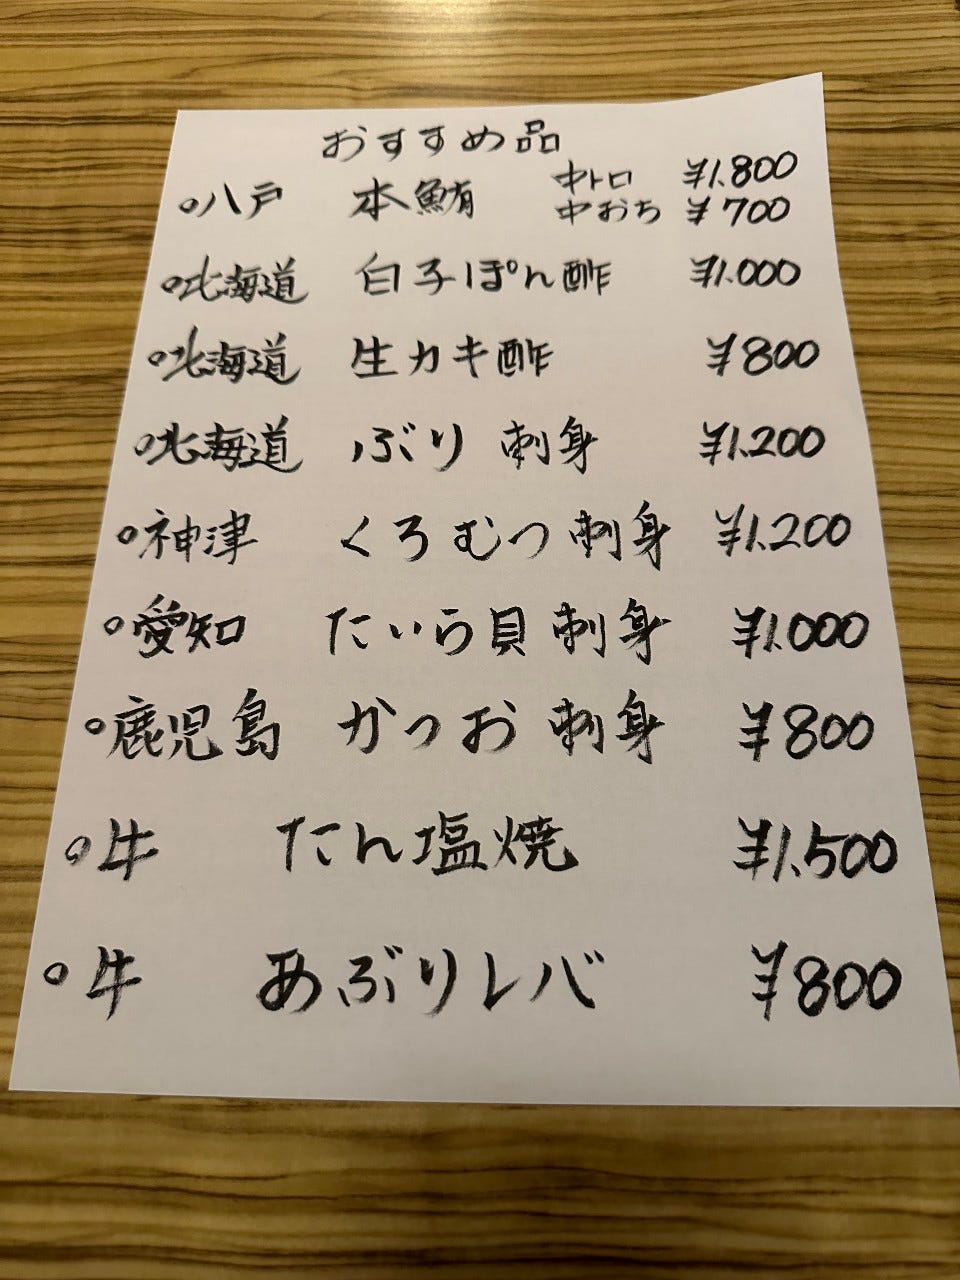 おすすめ品
○八戸 本鮪 中トロ ¥1.800
中おち ¥700
○北海道 白子ぽん酢 ¥1.000
○北海道 生カキ酢 ¥800
○北海道 ぶり刺身 ¥1.200
○神津 くろむつ刺身 ¥1.200
○愛知 たいら貝刺身 ¥1.000
○鹿児島 かつお刺身 ¥800
○牛 たん塩焼 ¥1.500
○牛 あぶりレバ ¥800